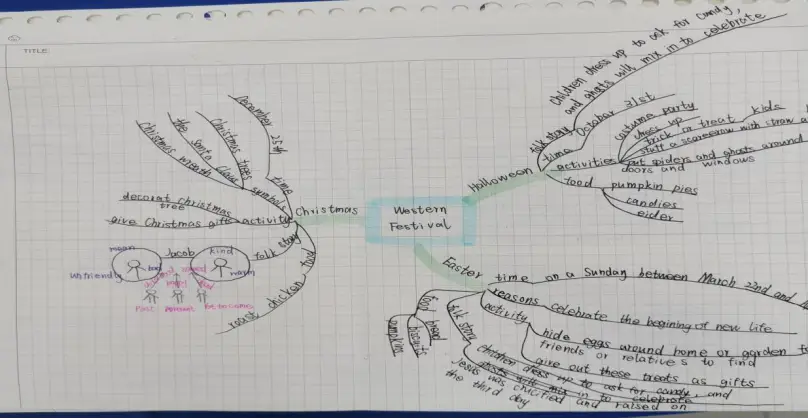 TITLE:
Western
Festival
Halloween
folk story
Children dress up to ask for candy,
and ghosts will mix in to celebrate
time
October 31st
activities
costume party
dress up
trick or treat
kids
stuff a scarecrow with straw
put spiders and ghosts around
doors and windows
food
pumpkin pies
candies
eider
Easter
time
on a Sunday between March 22nd and
reasons
celebrate the begining of new life
activity
hide eggs around home or garden
friends or relatives to find
give out these treats as gifts
folk story
children dress up to ask for candy, and
ghosts will mix in to celebrate
Jesus was crucified and raised on
the third day
food
bread
biscuits
pumpkins
Christmas
time
December 25th
symbols
Christmas trees
the Santa Claus
Christmas wreath
activity
decorat Christmas
tree
give Christmas gift
folk story
Jacob
mean
unfriendly
kind
warm
past
food
roast chicken